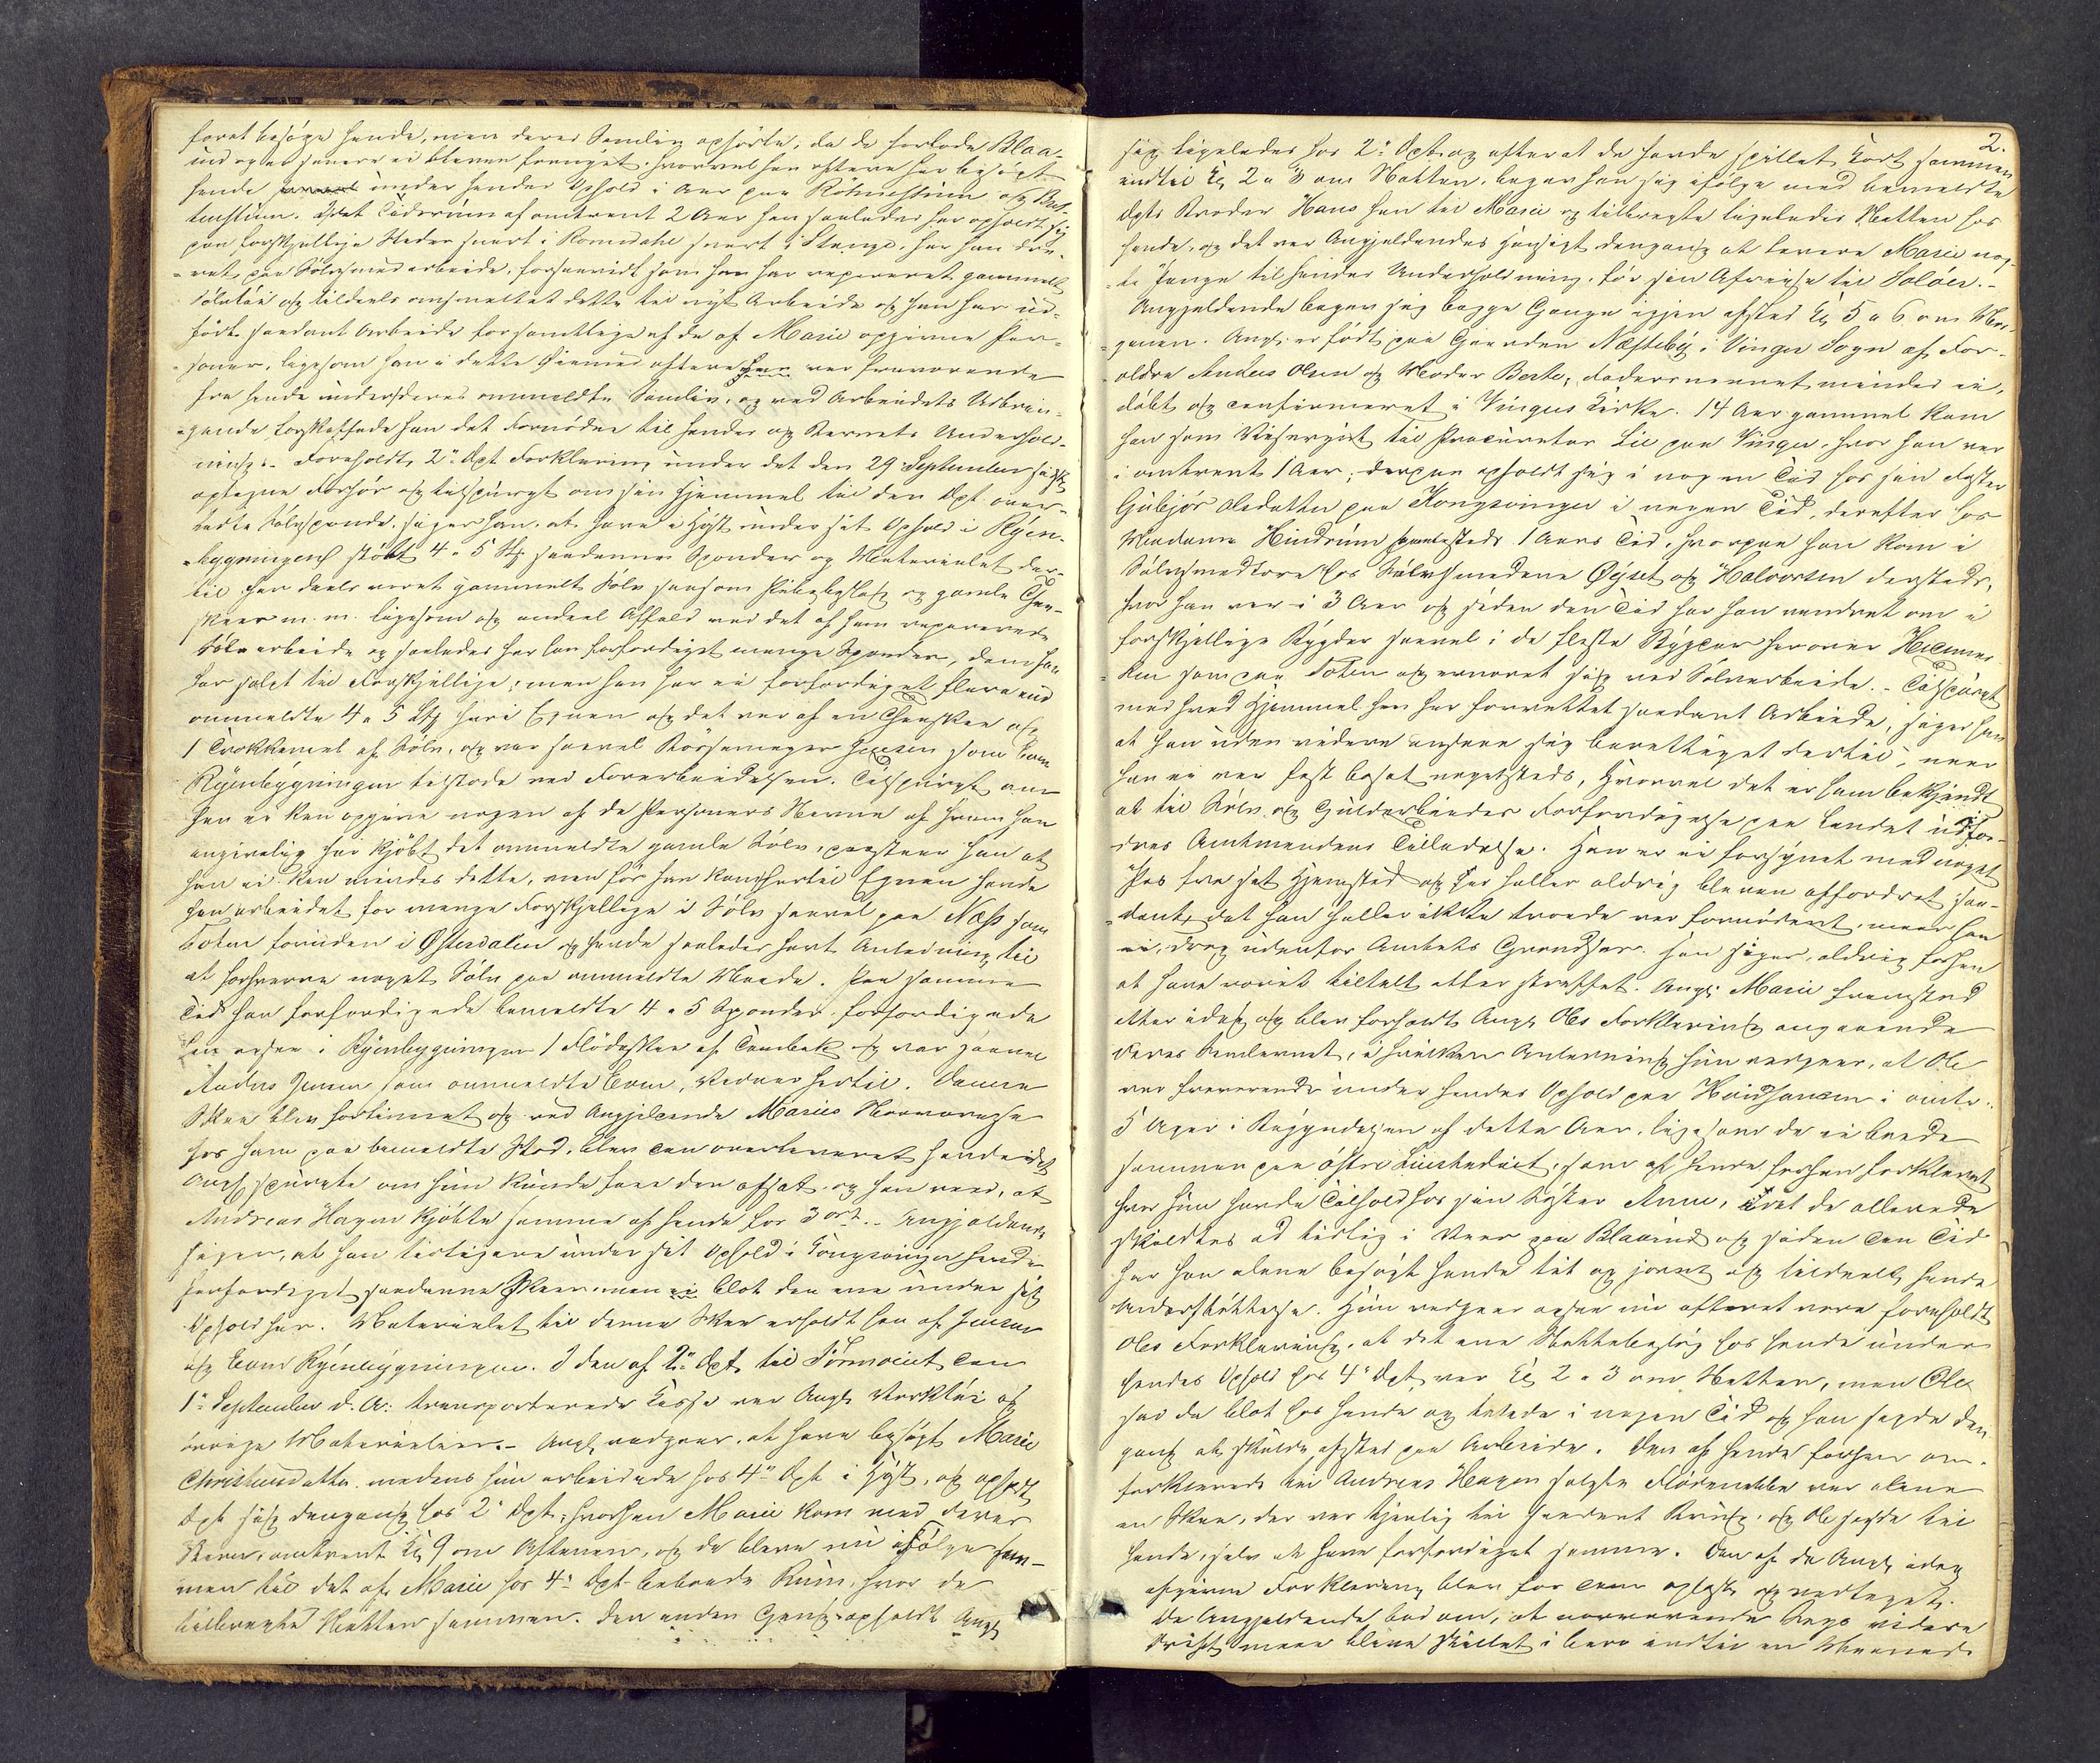 foret besøge hende, men deres Samliv ophørte, da de forlode Blaa-
ind og er senere ei bleven fornyet, hvorvel han oftere har besøgt
hende under hendes Ophold i Aar paa Rötnæsthum og But-
umsthum. I det Tidsrum af omtrent 2 Aar han saaledes har opholdt sig
paa forskjellige Steder snart i Romedahl snart i Stange, har han
paa Sølvsmedarbeide, forsaavidt som han har repareret gammelt
Sølvtøi og tildeels omsmeltet dette til nyt Arbeide og han har ud-
ført saadant Arbeide for samtlige af de af Marie opgivne Per-
soner, ligesom han i dette Øiemed oftere var fraværende
fra hende under deres ommeldte Samliv, og ved Arbeidets Udbrin-
gende forskaffede han det Fornødne til hendes og Barnets Underhold-
ning. Foreholdt 2 Dpt Forklaring under det den 29 September sidste
optagne Forhør og tilspurgt om sin Hjemmel til den Dpt over-
ladte Sølvsponde, siger han, at have i Høst under sit Ophold i Ryen-
bygningen støbt 4 a 5 St saadanne Sponder og Materialet der-
til har deels været gammelt Sølv saasom Pibebeslag og gamle Thee-
skeer m. m. ligesom og endeel Affald ved det af ham reparerede
Sølvarbeide og saaledes har han forfærdiget mange Sponder, dem han
har solgt til Forskjellige; men han har ei forfærdiget flere end
ommeldte 4 a 5 St her i Egnen og det var af en Theeskee og
1 Trøkkemel af Sølv, og var saavel Børsemager Jensen som Even
Ryenbygningen tilstede ved Forarbeidelsen. Tilspurgt om
han ei kan opgive nogen af de Personers Navne af hvem han
angivelig har kjøbt det ommeldte gamle Sølv, paastaar han at
han ei kan mindes dette, men før han kom hertil Egnen havde
han arbeidet for mange Forskjellige i Sølv saavel paa Næss som
Toten foruden i Østerdalen og havde saaledes havt Anledning til
at forhverve noget Sølv paa ommeldte Maade. Paa samme
Tid han forfærdigede bemeldte 4 a 5 Sponder forfærdigede
han ogsaa i Ryenbygningen 1 Flødeskee af Tombak og var saavel
Anders Jensen som ommeldte Even, Vidner hertil. Denne
Skee blev fortinnet og ved Angjeldende Maries Nærværelse
hos ham paa bemeldte Sted, blev den overleveret hende idet
Angl spurgte om hun kunde faae den afsat, og han veed, at
Andreas Hagen kjøbte samme af hende for 3 ort. Angjeldende
siger, at han tidligere under sit Ophold i Kongsvinger havde
forfærdiget saadanne Skeer, men ei blot den ene under sit
Ophold her. Materialet til denne Skee erholdt han af Jensen
og Even Ryenbygningen. I den af 2 Dpt til Tørmoiet den
1 September d. A. transporterede Kasse var Angl. Værktøi og
øvrige Materialier. Angl. vedgaar, at have besøgt Marie
Christensdatter medens hun arbeidede hos 4 Dpt i Høst, og opholdt
Dpt sig dengang hos 2 Dpt, hvorhen Marie kom med deres
Barn, omtrent Kl 9 om Aftenen, og de bleve nu i Følge sam-
men til det af Marie hos 4 Dpt beboede Rum, hvor de
tilbragte Natten sammen. Den anden Gang opholdt Angl
2.
sig ligeledes hos 2 Dpt og efterat de havde spillet Kort sammen
indtil Kl 2 a 3 om Natten, begav han sig ifølge med bemeldte
Dpts Broder Hans hen til Marie og tilbragte ligeledes Natten hos
hende, og det var Angjeldendes Hensigt dengang at levere Marie nog-
le Penge til hendes Underholdning, før sin Afreise til Soløer.
Angjeldende begav sig begge Gange igjen afsted Kl 5 a 6 om Mor-
genen. Angl. er født paa Gaarden Næstebÿ i Vinger Sogn af For-
ældre Anders Olsen og Moder Berthe, Fadersnavnet mindes ei,
døbt og confirmeret i Vingers Kirke. 14 Aar gammel kom
han som Visergut til Procurator Lie paa Vinger, hvor han var
i omtrent 1 Aar; derpaa opholdt sig i nogen Tid hos sin Faster
Gubjør Olsdatter paa Kongsvinger i nogen Tid, derefter hos
Madame Hindrum sammesteds 1 Aars Tid, hvorpaa han kom i
Sølvsmedlære hos Sølvsmedene Øyset og Halvorsen dersteds,
hvor han var i 3 Aar og siden den Tid har han vandret om i
forskjellige Bygder saavel i de fleste Bygder herover Hedemar-
ken som paa Toten og ernæret sig ved Sølvarbeide. Tilspurgt
med hvad Hjemmel han har forrettet saadant Arbeide, siger han
at han uden videre ansaae sig berettiget dertil, naar
han ei var fast bosat nogetsteds, hvorvel det er ham bekjendt
at til Sølv og Guldarbeiders Forfærdigelse paa Landet udfor-
dres Amtmandens Tilladelse. Han er ei forsynet med noget
Pas fra sit Hjemsted og har heller aldrig bleven affordret saa-
dant, det han heller ikke troede var fornødent, naar han
ei drog udenfor Amtets Grændser. Han siger, aldrig forhen
at have været tiltalt eller straffet. Angl. Marie fremstod
efter idag og blev foreholdt Angl. Oles Forklaring angaaende
deres Samlevnet, i hvilken Anledning hun vedgaar, at Ole
var fraværende under hendes Ophold paa Hvidhammer i omtr.
5 Uger i Begyndelsen af dette Aar, ligesom de ei levede
sammen paa østre Linstadeiet, som af hende forhen forklaret
hvor hun havde Tilhold hos sin Syster Anne, idet de allerede
skildtes ad tidlig i Vaar paa Blaaind og siden den Tid
har han alene besøgt hende tit og jevnt og tildeelt hende
Understøttelse. Hun vedgaar ogsaa nu efterat være foreholdt
Oles Forklaring, at det ene Nattebesøg hos hende under
hendes Ophold hos 4 Dpt var Kl 2 a 3 om Natten, men Ole
sad da blot hos hende og talede i nogen Tid og han sagde den-
gang at skulde afsted paa Arbeide. Den af hende forhen om-
forklarede til Andreas Hagen solgte Flødenebbe var alene
en Skee, der var tjenlig til saadant Brug, og Ole sagde til
hende, selv at have forfærdiget samme. Den af de Angl. idag
afgivne Forklaring blev for dem oplæst og vedtaget.
De Angjeldende bad om, at nærværende Sags videre
Drift maa blive stillet i bero indtil en Maaned